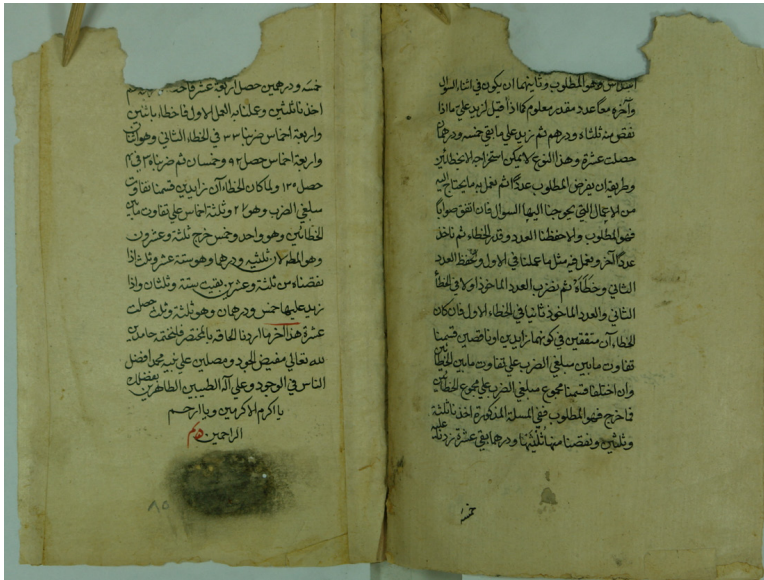 السدس وهو المطلوب وثانيهما ان يكون في اثناء السوال
وآخره معًا عدد مقدر معلوم كما اذا قيل لزيد علي ما اذا
نقص منه ثلثاه ودرهم ثم زيد علي ما بقي خمسه ودرهمان
حصلت عشرة وهذا النوع لا يمكن استخراجه الا بخطائين
وطريقه ان يفرض المطلوب عددًا ثم نعمل به ما يحتاج اليه
من الاعمال التي يحوجنا اليها السوال فان اتفق صوابا
فهو المطلوب والا حفظنا العدد وقدر الخطاء ثم ناخذ
عددًا آخر ونعمل فيه مثل ما عملنا في الاول ونحفظ العدد
الثاني وخطاءه ثم نضرب العدد الماخوذ اولا في الخطأ
الثاني والعدد الماخوذ ثانيا في الخطاء الاول فان كان
الخطاءآن متفقين في كونهما زايدين او ناقصين قسمنا
تفاوت ما بين مبلغي الضرب علي تفاوت ما بين الخطائين
وان اختلفا قسمنا مجموع مبلغي الضرب علي مجموع الخطائين
فما خرج فهو المطلوب ففي المسلة المذكورة اخذنا ثلثة
وثلثين ونقصنا منها ثلثيها ودرهما بقي عشرة زدنا عليه
خمسه
خمسه ودرهمين حصل اربعة عشر
اخذنا ثلثين وعلمنا به العمل الاول فاخطاء باثنين
واربعة اخماس ضربنا ٣٣ في الخطاء الثاني وهو اثنان
واربعة اخماس حصل ٩٢ وخمسان ثم ضربنا
حصل ١٣٥ ولما كان الخطاءآن زايدين قسمنا تفاوت
مبلغي الضرب وهو ٤٢ وثلثة اخماس علي تفاوت مابين
الخطائين وهو واحد وخمس خرج ثلثة وعشرون
وهو المط لان ثلثيه ودرهما وهو ستة عشر وثلث اذا
نقصناه من ثلثة وعشرين بقيت ستة وثلثان واذا
زيد عليها خمس ودرهمان وهو ثلثة وثلث حصلت
عشرة هذا آخر ما اردنا الحاقه بالمختصر فلنختمه حامدين
لله تعالي مفيض الجود ومصلين علي نبيه محمد افضل
الناس في الوجود وعلي آله الطيبين الطاهرين بفضلك
يا اكرم الاكرمين ويا ارحم
الراحمين
٨٥